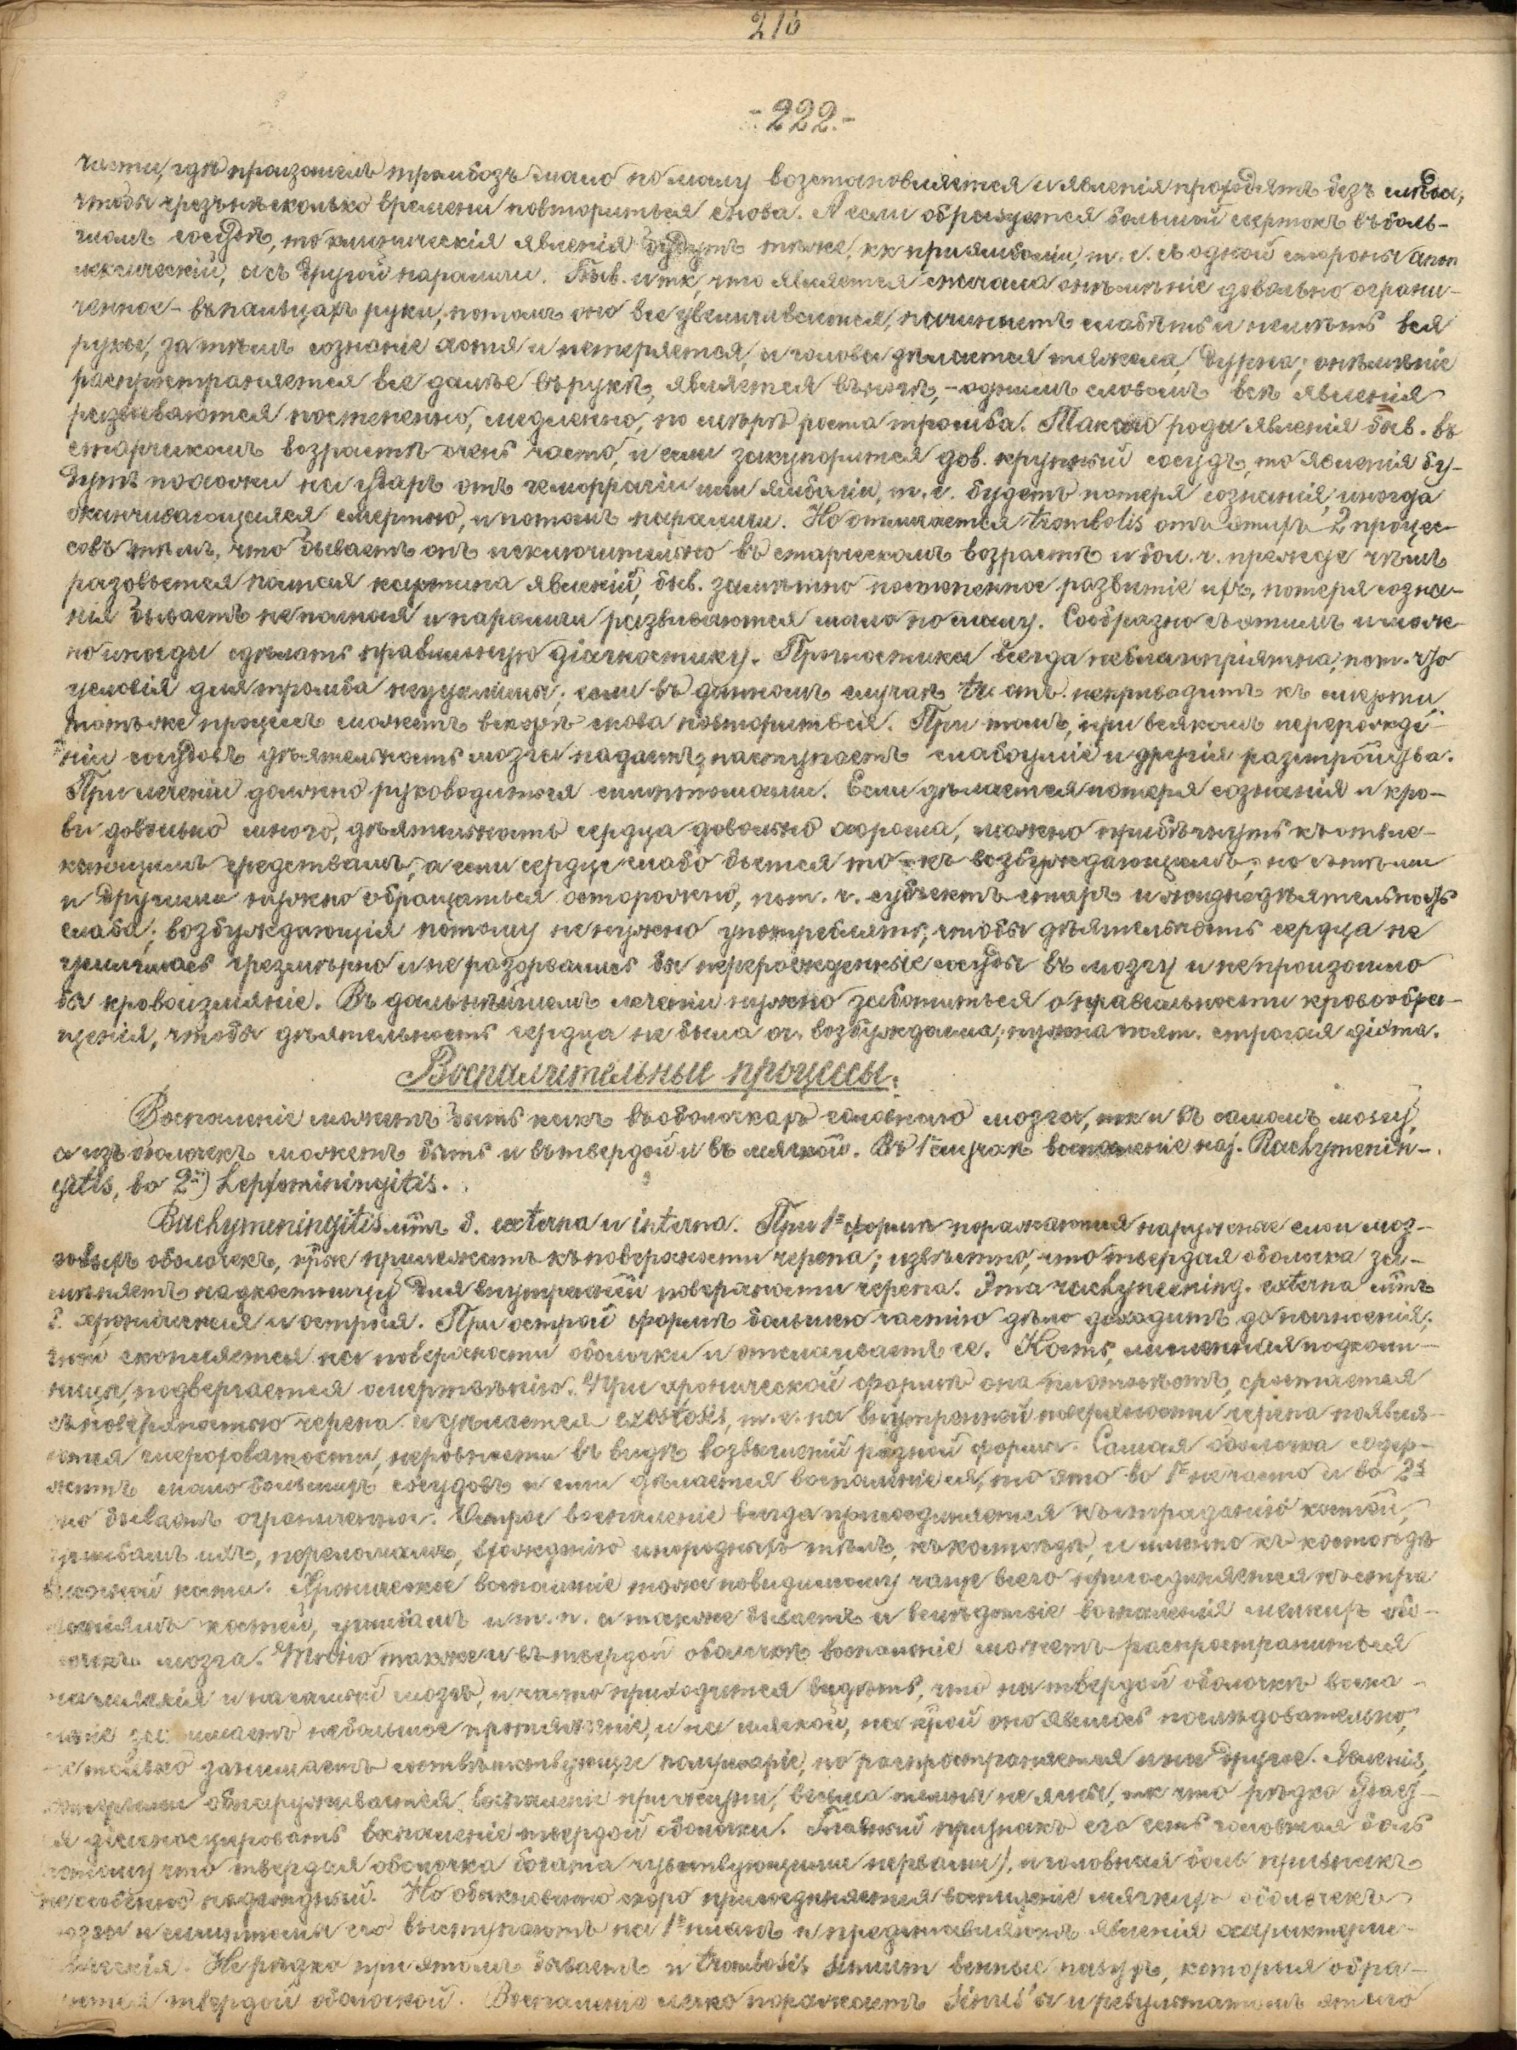 216
-222.-
части, гдѣ произошелъ тромбозъ мало по малу возстановляется и явленія проходятъ безъ слѣда,
чтобы чрезъ нѣсколько времени повториться снова. А если образуется большой свертокъ въ боль-
шомъ сосудѣ, то клиническія явленія будутъ тѣже, кк при эмболіи, т. е. съ одной стороны апоп
лексическій, а съ другой параличи. Быв. и тк, что является сначала онѣмѣніе довольно ограни-
ченное - въ пальцахъ руки, потомъ оно все увеличивается, начинаетъ слабѣть и нѣмѣть вся
рука, затѣмъ сознаніе хотя и не теряется, и голова дѣлается тяжела, дурна; онѣмѣніе
распространяется все далѣе въ рукѣ, является въ ногѣ, - однимъ словомъ всѣ явленія
развиваются постепенно, медленно, по мѣрѣ роста тромба. Такого рода явленія быв. въ
старческомъ возрастѣ очень часто, и если закупорится дов. крупный сосудъ, то явленія бу-
дутъ похожи на ударъ отъ геморрагіи или эмболіи, т. е. будетъ потеря сознанія, иногда
оканчивающаяся смертью, и потомъ параличи. Но отличается trombosis отъ этихъ 2 процес-
совъ тѣмъ, что бываетъ онъ исключительно въ старческомъ возрастѣ и бол. ч. прежде чѣмъ
разовьется полная картина явленій, быв. замѣтно постепенное развитіе ихъ, потеря созна-
нія бываетъ неполная и параличи развиваются мало по малу. Сообразно съ этимъ и мож-
но иногда сдѣлать правильную діагностику. Прогностика всегда неблагопріятна, пот. что
условія для тромба неудалимы; если въ данномъ случаѣ не приводитъ къ смерти
тотъ же процессъ можетъ вскорѣ снова повториться. При томъ, при всякомъ перерожде-
ніи сосудовъ дѣятельность мозга падаетъ, наступаетъ слабоуміе и другія разстройства.
При леченіи должно руководиться симптомами. Если дѣлается потеря сознанія и кро-
ви довольно много, дѣятельность сердца довольно хороша, можно прибѣгнуть къ отвле-
кающимъ средствамъ, а если сердце слабо бьется то - къ возбуждающимъ; но съ тѣми
и другими нужно обращаться осторожно, пот. ч. субъектъ старъ и дѣятельность
слаба; возбуждающія потому не нужно употреблять, чтобы дѣятельность сердца не
усилилась чрезмѣрно и не разорвались бы перерожденные сосуды въ мозгу и не произошло
бы кровоизліяніе. Въ дальнѣйшемъ леченіи нужно заботиться о правильности кровообра-
щенія, чтобы дѣятельность сердца не была оч. возбуждаема; нужна поэт. строгая діэта.
Воспалительные процессы.
Воспаленіе можетъ быть какъ въ оболочкахъ головного мозга, тк и въ самомъ мозгу,
а изъ оболочекъ можетъ быть и въ твердой и въ мягкой. Въ 1 случаѣ воспаленіе наз. Pachymenin-
gitis, во 2й) Leptomeningitis.
Pachymeningitis мжт. б. externa и interna. При 1й формѣ поражаются наружные слои моз-
говыхъ оболочекъ, кжс прилежатъ къ поверхности черепа; извѣстно, что твердая оболочка за-
мѣняетъ надкостницу для внутренней поверхности черепа. Эта pachymening. externa мжт.
б. хроническая и острая. При острой формѣ большею частію дѣло доходитъ до нагноенія;
гной скопляется на поверхности оболочки и отслаиваетъ ее. Кость, лишенная надкост-
ницы, подвергается омертвѣнію. При хронической формѣ она плотнѣетъ, сростается
съ поверхностью черепа и дѣлается exostosis, т. е. на внутренней поверхности черепа появля-
ются шероховатости, неровности въ видѣ возвышеній разной формы. Самая оболочка содер-
житъ мало большихъ сосудовъ и если дѣлается воспаленіе ея, то это во 1х не часто и во 2х
оно бываетъ ограниченно. Острое воспаленіе всегда присоединяется къ страданію костей,
ушибамъ ихъ, переломамъ, вхожденію инородныхъ тѣлъ, къ костоѣдѣ, и именно къ костоѣдѣ
височной кости. Хроническое воспаленіе тоже повидимому чаще всего присоединяется къ страда
ніямъ костей, ушибамъ и т. п. а также бываетъ и вслѣдствіе воспаленія мягкихъ обо-
лочекъ мозга. Точно также и въ твердой оболочкѣ воспаленіе можетъ распространиться
на мягкія и на самый мозгъ, и часто приходится видѣть, что на твердой оболочкѣ воспа-
леніе занимаетъ небольшое протяженіе, и на мягкой, на крой оно явилось послѣдовательно,
не только занимаетъ соотвѣтствующее полушаріе, но распространяется и на другое. Явленія,
которыми обнаруживается воспаленіе при жизни, весьма темны не ясны, тк что рѣдко удает-
ся діагносцировать воспаленіе твердой оболочки. Главный признакъ его есть головная боль
потому что твердая оболочка богата чувствующими нервами), и головная боль признакъ
не особенно надежный. Но обыкновенно скоро присоединяется воспаленіе мягкихъ оболочекъ
мозга и симптомы его выступаютъ на 1й планъ и представляютъ явленія характери-
стическія. Нерѣдко при этомъ бываетъ и trombosis sinuum венные пазухъ, которыя обра-
зуются твердой оболочкой. Воспаленіе легко поражаетъ sinus'ы и результатомъ этого